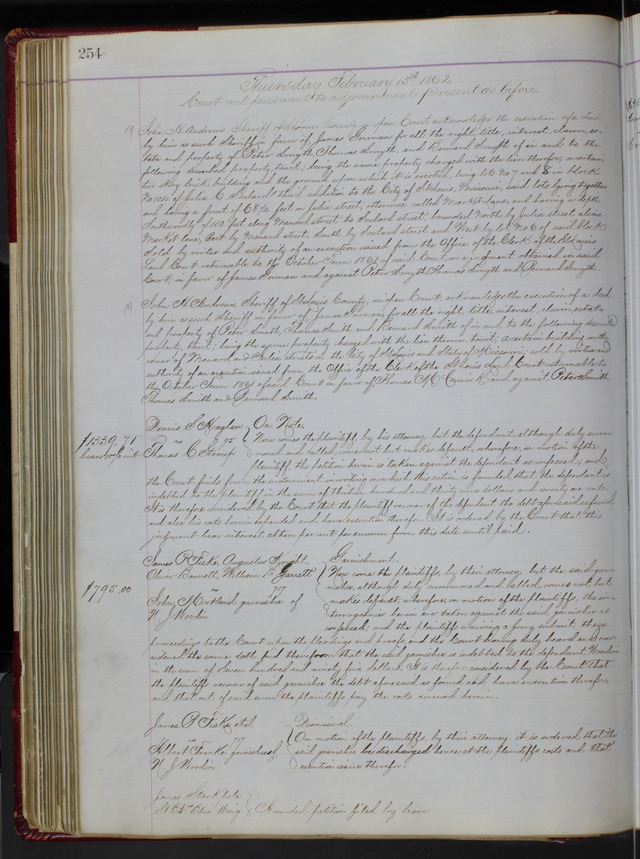 254
Thursday February 13th 1862
Court met pursuant to adjournment, present as before
John H Andrews Sheriff of St Louis County in open Court acknowledges the execution of a deed
by him as such Sheriff in favor of James Gonnan for all the right, title, interest, claim, es-
tate and property of Peter Smyth, Thomas Smyth, and Bernard Smyth of in and to the
following described property, to wit; being the same property charged with the lien therefor, a certain
two story brick building and the ground upon which it is erected, being lots No 7 and 8 in block
No of Julia C Soulard's third addition to the City of St Louis, Missouri, said lots lying together
and having a front of feet on Julia street, otherwise called Market lane, and having a depth
Southwardly of 150 feet along Menard street to Soulard street, bounded North by Julia street alias
Market lane, East by Menard street, South by Soulard street and West by lot No 6 of said block
Sold by virtue and authority of an execution issued from the Office of the Clerk of the St Louis
Land Court returnable to the October Term 1861 of said Court, on a judgment obtained in said
Court, in favor of James Gonnan and against Peter Smyth, Thomas Smyth and Bernard Smyth
John H Andrews, Sheriff of St Louis County, in open Court, acknowledges the execution of a deed
by him as said Sheriff in favor of James Gonnan for all the right, title, interest, claim, estate
and property of Peter Smith, Thomas Smith and Bernard Smith of in and to the following described
property, to wit; being the same property charged with the lien therein to wit; a certain building on the
corner of Menard and Julia streets in the City of St Louis and State of Missouri; sold by virtue and
authority of an execution issued from the Office of the Clerk of the St Louis Land Court returnable to
the October Term 1861 of said Court in favor of Thomas and against Peter Smith
Thomas Smith and Bernard Smith.
Dennis S On Note.
$1339,71 vs 95 Now comes the plaintiff, by his attorney, but the defendant, although duly summ
bears 10 pr ct int Thomas C moned and called, comes not but makes default, wherefore, on motion of the
plaintiff, the petition herein is taken against the defendant as confessed; and
the Court finds from the instrument in writing on which this action is founded, that the defendant is
indebted to the plaintiff in the sum of thirteen hundred and thirty nine dollars and seventy one cents.
It is therefore considered by the Court that the plaintiff recover of the defendant the debt aforesaid as found
and also his costs herein expended and have execution therefor. It is ordered by the Court that this
judgment bear interest at ten per cent per annum from this date until paid.
James P Fiske, Augustus Knight, Garnishment.
Oliver Bennett, William P Garnett Now come the plaintiffs, by their attorney, but the said gar-
$795,00 vs 717 nishee, although duly summoned and called, comes not but
John garnishee of makes default, wherefore, on motion of the plaintiffs, the in-
N J Wordin terrogatories herein are taken against the said garnishee as
confessed; and the plaintiffs waiving a jury submit these
proceedings to the Court upon the pleadings and proofs, and the Court having duly heard and con-
sidered the same doth find therefrom that the said garnishee is indebted to the defendant Wordin
in the sum of Seven hundred and ninety five dollars. It is therefore considered by the Court that
the plaintiffs recover of said garnishee the debt aforesaid as found and have execution therefor
and that out of said sum the plaintiffs pay the costs accrued herein.
James P Fiske et al Dismissal.
vs 717 On motion of the plaintiffs, by their attorney, it is ordered that the
Frank, garnishee of said garnishee be discharged hence at the plaintiffs costs and that
N J Wordin execution issue therefor.
James
vs Amended petition filed by leave